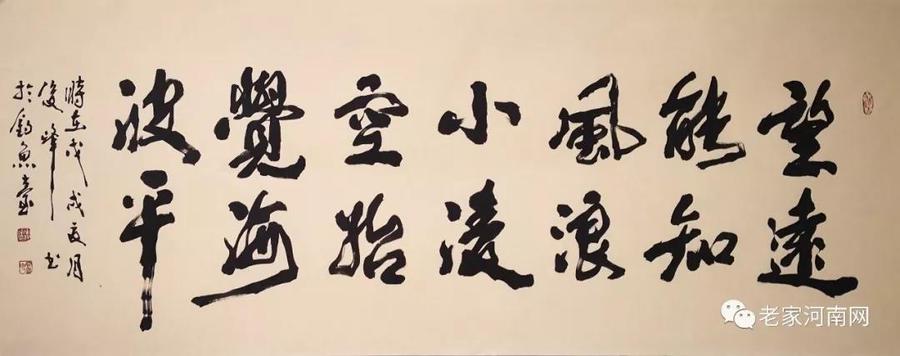 望遠
能知
風浪
小凌
空始
覺海
波平
時在戊戌夏月
俊峰书
於釣魚臺
老家河南网